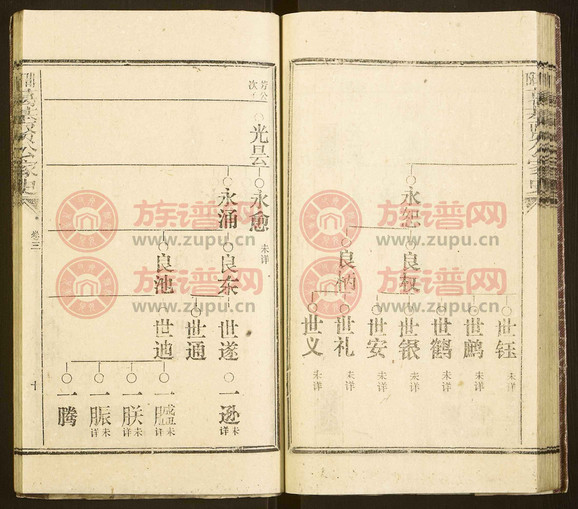 永恕
良权
世钰
未详
世鹧
未详
世鹤
未详
世银
未详
世安
未详
世礼
未详
世义
未详
次
光昙
永愈
未详
永涌
良东
良池
世遂
世通
世迪
一逊
未详
一朕
未详
一脤
未详
一腾
卷三
十
族谱网
www.zupu.cn
族谱网
www.zupu.cn
族谱网
www.zupu.cn
族谱网
www.zupu.cn